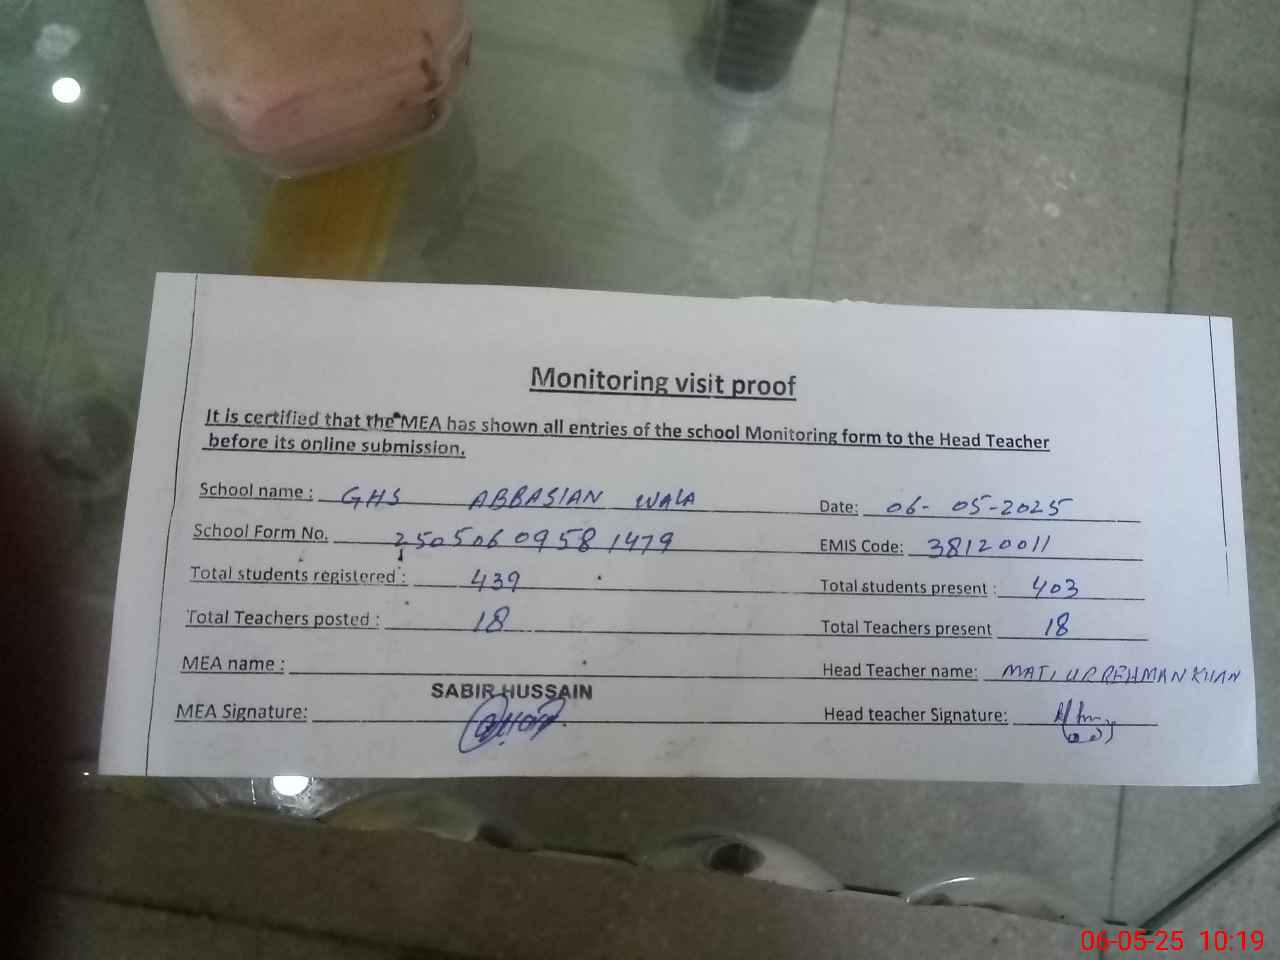 Monitoring visit proof
It is certified that the MEA has shown all entries of the school Monitoring form to the Head Teacher
before its online submission.
School name : GHS ABBASIAN WALA Date: 06-05-2025
School Form No. 25050609581479 EMIS Code: 38120011
Total students registered : 439 Total students present : 403
Total Teachers posted : 18 Total Teachers present 18
MEA name : Head Teacher name: MATI UR REHMAN KHAN
SABIR HUSSAIN
MEA Signature: Head teacher Signature:
06-05-25 10:19